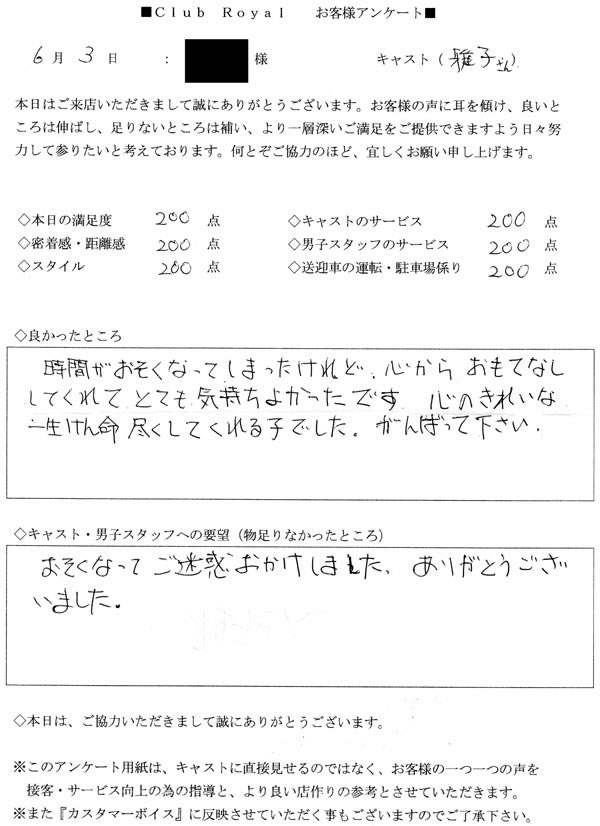 ■Club Royal　お客様アンケート■
6月 3日 : 様 キャスト( 雅子さん )
本日はご来店いただきまして誠にありがとうございます。お客様の声に耳を傾け、良いと
ころは伸ばし、足りないところは補い、より一層深いご満足をご提供できますよう日々努
力して参りたいと考えております。何とぞご協力のほど、宜しくお願い申し上げます。
◇本日の満足度 200 点 ◇キャストのサービス 200 点
◇密着感・距離感 200 点 ◇男子スタッフのサービス 200 点
◇スタイル 200 点 ◇送迎車の運転・駐車場係り 200 点
◇良かったところ
時間がおそくなってしまったけれど、心から おもてなし
してくれて とても 気持ちよかったです 心のきれいな
一生けん命 尽くしてくれる子でした。がんばって下さい.
◇キャスト・男子スタッフへの要望（物足りなかったところ）
おそくなって ご迷惑おかけしました、ありがとうござ
いました。
◇本日は、ご協力いただきまして誠にありがとうございます。
※このアンケート用紙は、キャストに直接見せるのではなく、お客様の一つ一つの声を
接客・サービス向上の為の指導と、より良い店作りの参考とさせていただきます。
※また『カスタマーボイス』に反映させていただく事もございますのでご了承下さい。